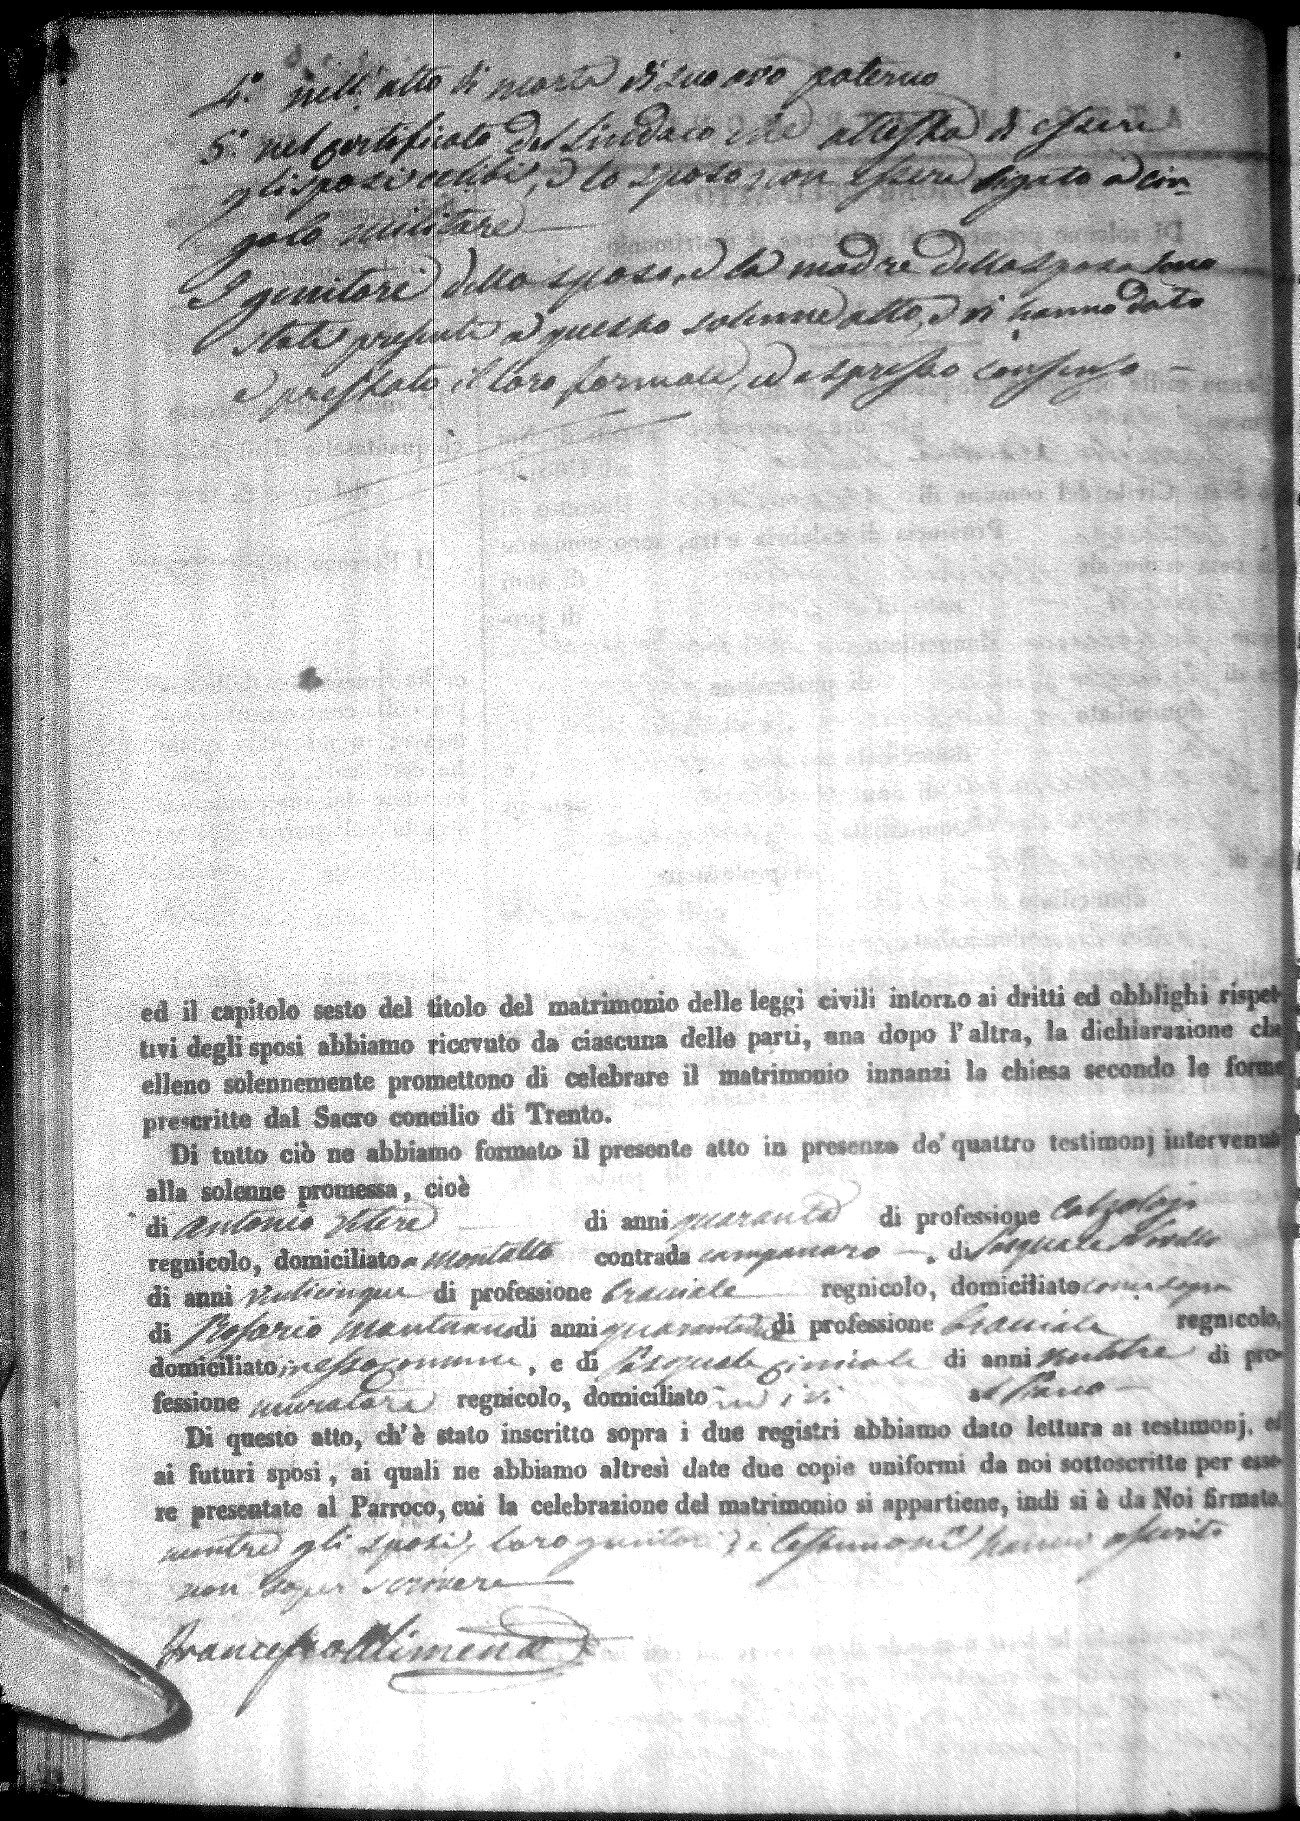 4.° nell'atto di morte di suo avo paterno
5.° nel certificato del Sindaco che attesta di essere
gli sposi celibi, e lo sposo non essere ligato a cin-
golo militare
I genitori dello sposo, e la madre della sposa sono
stati presenti a questo solenne atto, e vi hanno dato
e prestato il loro formale, ed espresso consenso —
ed il capitolo sesto del titolo del matrimonio delle leggi civili intorno ai dritti ed obblighi rispet-
tivi degli sposi abbiamo ricevuto da ciascuna delle parti, una dopo l'altra, la dichiarazione che
elleno solennemente promettono di celebrare il matrimonio innanzi la chiesa secondo le forme
prescritte dal Sacro concilio di Trento.
Di tutto ciò ne abbiamo formato il presente atto in presenza de' quattro testimonj intervenuti
alla solenne promessa, cioè
di Antonio Vitere di anni quaranta di professione Calzolajo
regnicolo, domiciliato a Montalto contrada campanaro —, di Pasquale
di anni venticinque di professione bracciale regnicolo, domiciliato come sopra
di Rosario Mantuano di anni di professione bracciale regnicolo,
domiciliato, in esso comune, e di Pasquale di anni ventitre di pro-
fessione muratore regnicolo, domiciliato in ivi
Di questo atto, ch'è stato inscritto sopra i due registri abbiamo dato lettura ai testimonj, ed
ai futuri sposi, ai quali ne abbiamo altresì date due copie uniformi da noi sottoscritte per esse-
re presentate al Parroco, cui la celebrazione del matrimonio si appartiene, indi si è da Noi firmato.
mentre gli sposi, loro genitori, e testimonj hanno asserito
non saper scrivere
Francesco Alimena